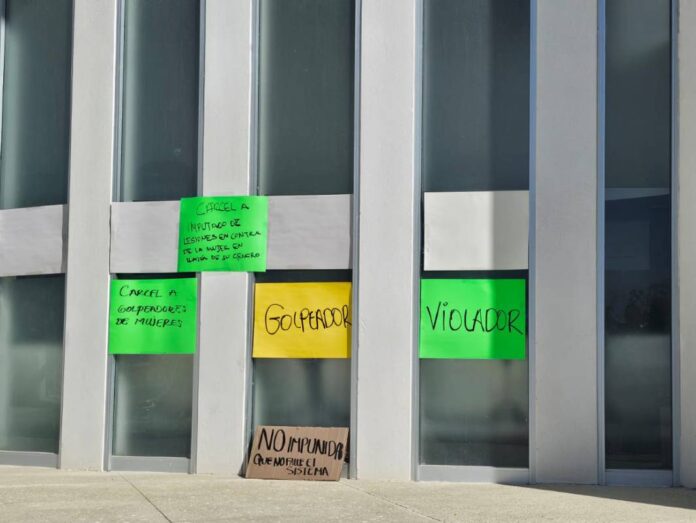 CARCEL A
IMPUTADO DE
LESIONES EN CONTRA
DE LA MUJER EN
RAZON DE SU GENERO
CARCEL A
GOLPEADORES
DE MUJERES
GOLPEADOR
VIOLADOR
NO IMPUNIDAD
QUE NO FALLE EL
SISTEMA